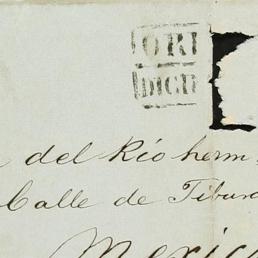 ORI
DICI
del Río herm
Calle de Tibur
Mexic